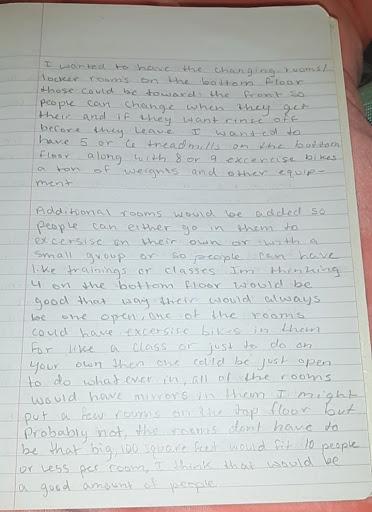 I wanted to have the changing rooms/
locker rooms on the bottom floor
those could be toward the front so
people can change when they get
their and if they want rinse off
before they leave I wanted to
have 5 or 6 treadmills on the bottom
floor along with 8 or 9 excercise bikes
a ton of weights and other equip-
ment

Additional rooms would be added so
people can either go in them to
excersise on their own or with a
small group or so people can have
like trainings or classes Im thinking
4 on the bottom floor would be
good that way their would always
be one open, one of the rooms
could have excersise bikes in them
for like a class or just to do on
your own then one could be just open
to do what ever in, all of the rooms
would have mirrors in them I might
put a few rooms on the top floor but
probably not, the rooms dont have to
be that big, 100 square feet would fit 10 people
or less per room, I think that would be
a good amount of people